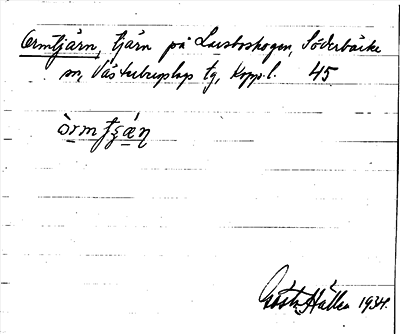 Ormtjärn, tjärn på Lusboskogen, Söderbärke
sn, Västerbergslags tg, Kopp. l. 45
òrmtʃá̱ṇ
Gösta Hälles 1934.